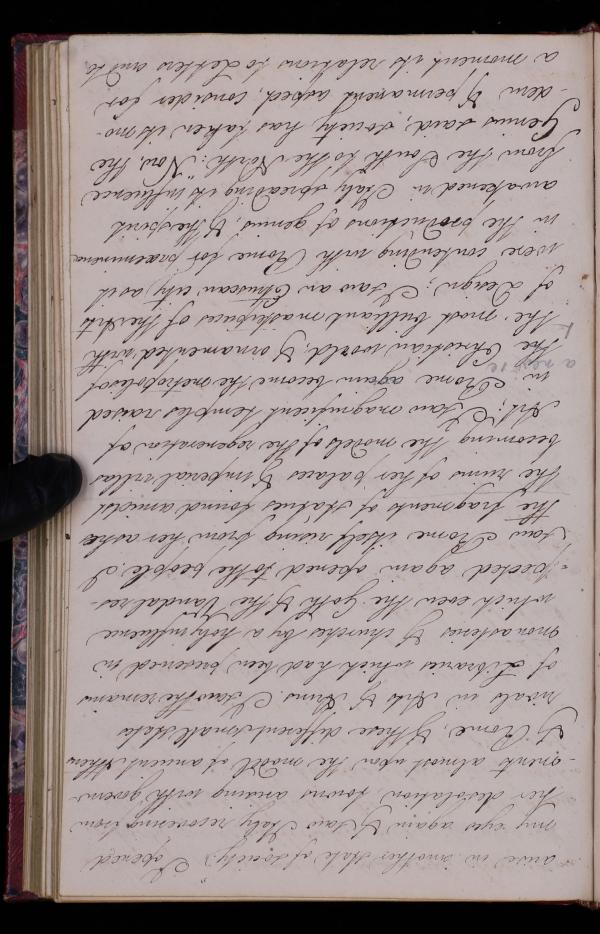 arise in another state of society." "I opened
my eyes again & saw Italy recovering from
her desolation towns arising with govern
-ments almost upon the model of ancient Athens
& Rome, & these different small states
rivals in Arts & Arms. I saw the remains
of Libraries which had been preserved in
monasteries & churches by a holy influence
which even the Goth & the Vandal res-
-pected again opened to the people. I
saw Rome itself rising from her ashes
the fragments of statues found amidst
the ruins of her palaces & imperial villas
becoming the models of the regeneration of
Art; I saw magnificent temples raised
in Rome again become the metropolis of
the Christian world, & ornamented with
the most brilliant masterpieces of the Arts
of Design; I saw an Etruscan city as it
were contending with Rome for preeminence
in the productions of genius, & the spirit
awakened in Italy spreading its influence
from the South to the North. "Now, the
Genius said, society has taken its mo-
-dern & permanent aspect, consider for
a moment its relations to Letters and to